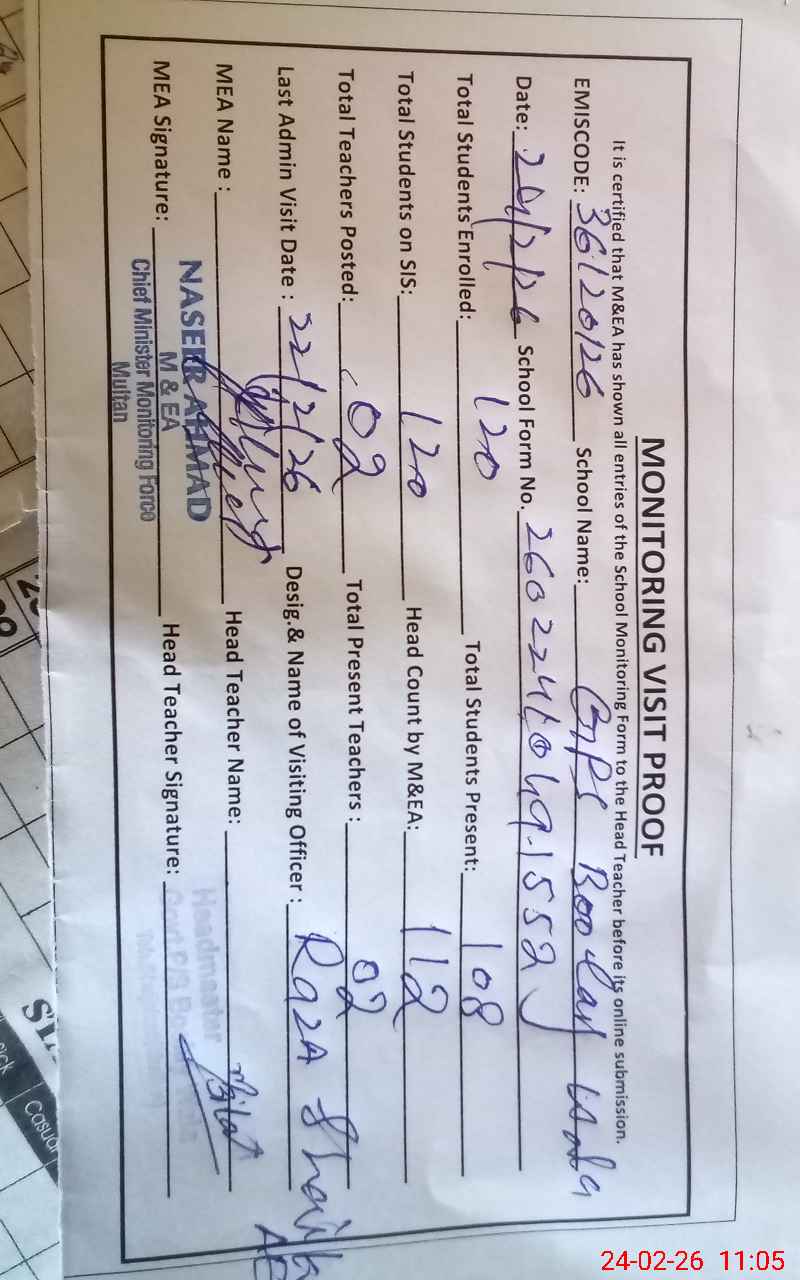 MONITORING VISIT PROOF
It is certified that M&EA has shown all entries of the School Monitoring Form to the Head Teacher before its online submission.
EMISCODE: 36120126 School Name: GPS
Date: 24/2/26 School Form No.
Total Students Enrolled: 120 Total Students Present: 108
Total Students on SIS: 120 Head Count by M&EA: 112
Total Teachers Posted: 02 Total Present Teachers : 02
Last Admin Visit Date : 22/2/26 Desig.& Name of Visiting Officer : Raza Shaikh
MEA Name : Head Teacher Name:
MEA Signature: Head Teacher Signature:
NASEER AHMAD
M & EA
Chief Minister Monitoring Force
Multan
Headmaster
Govt.P/S
Casual
24-02-26 11:05